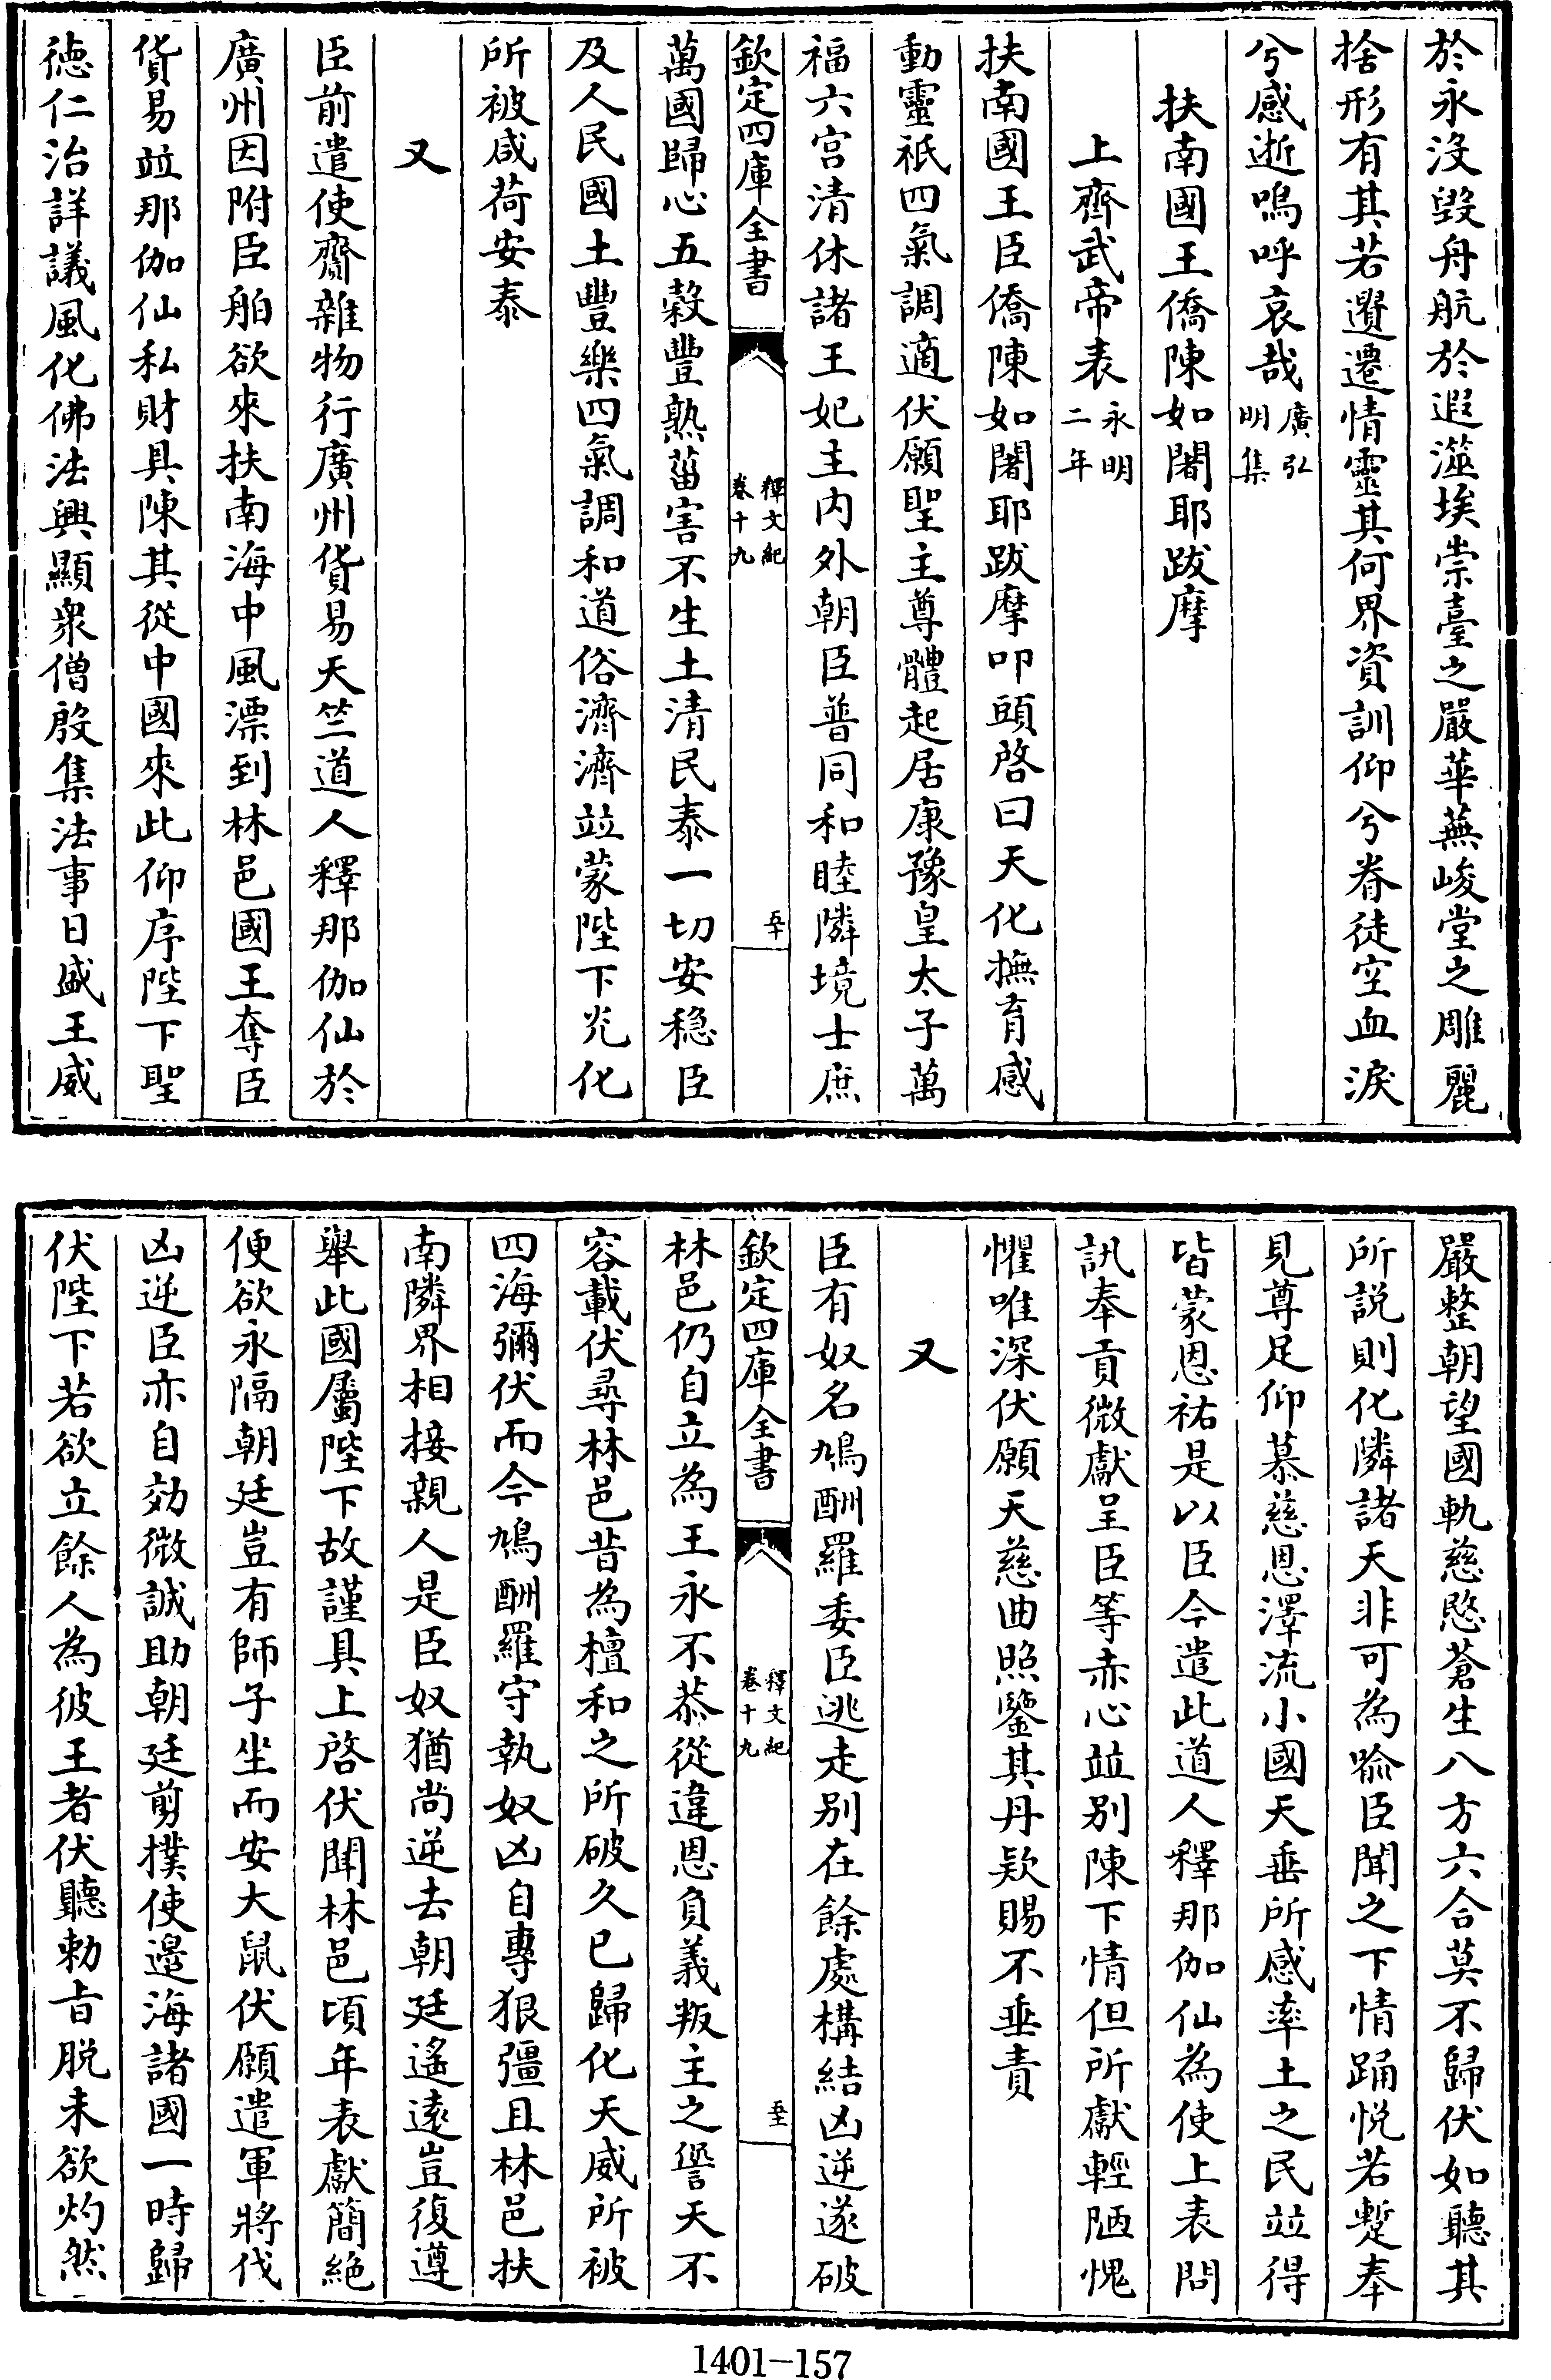 於永沒毀舟航於遐澨埃崇臺之嚴華蕪峻堂之雕麗
捨形有其若遷遷情靈其何界資訓仰兮眷徒空血淚
兮感逝嗚呼哀哉廣弘明集
扶南國王僑陳如闍耶跋摩
上齊武帝表永明二年
扶南國王臣僑陳如闍耶跋摩叩頭啓曰天化撫育感
動靈祇四氣調適伏願聖主尊體起居康豫皇太子萬
福六宫清休諸王妃主内外朝臣普同和睦隣境士庶
欽定四庫全書 釋文紀卷十九 五十
萬國歸心五穀豐熟菑害不生土清民泰一切安穏臣
及人民國土豐樂四氣調和道俗濟濟竝蒙陛下光化
所被咸荷安泰
又
臣前遣使齎雜物行廣州貨易天竺道人釋那伽仙於
廣州因附臣舶欲來扶南海中風漂到林邑國王奪臣
貨易竝那伽仙私財具陳其從中國來此仰序陛下聖
徳仁治詳議風化佛法興顯衆僧殷集法事日盛王威
嚴整朝望國軌慈愍蒼生八方六合莫不歸伏如聽其
所説則化隣諸天非可為喻臣聞之下情踊悅若蹔奉
見尊足仰慕慈恩澤流小國天垂所感率土之民竝得
皆蒙恩祐是以臣今遣此道人釋那伽仙為使上表問
訊奉貢微獻呈臣等赤心竝别陳下情但所獻輕陋愧
懼唯深伏願天慈曲照鑒其丹欵賜不垂責
又
臣有奴名鳩酬羅委臣逃走别在餘處構結凶逆遂破
欽定四庫全書 釋文紀卷十九 五十一
林邑仍自立為王永不恭從違恩負義叛主之諐天不
容載伏尋林邑昔為檀和之所破久已歸化天威所被
四海彌伏而今鳩酬羅守執奴凶自專狠彊且林邑扶
南隣界相接親人是臣奴猶尚逆去朝廷遙遠豈復遵
舉此國屬陛下故謹具上啓伏聞林邑頃年表獻簡絶
便欲永隔朝廷豈有師子坐而安大鼠伏願遣軍將伐
凶逆臣亦自効微誠助朝廷剪撲使邉海諸國一時歸
伏陛下若欲立餘人為彼王者伏聽勅旨脱未欲灼然
1401-157